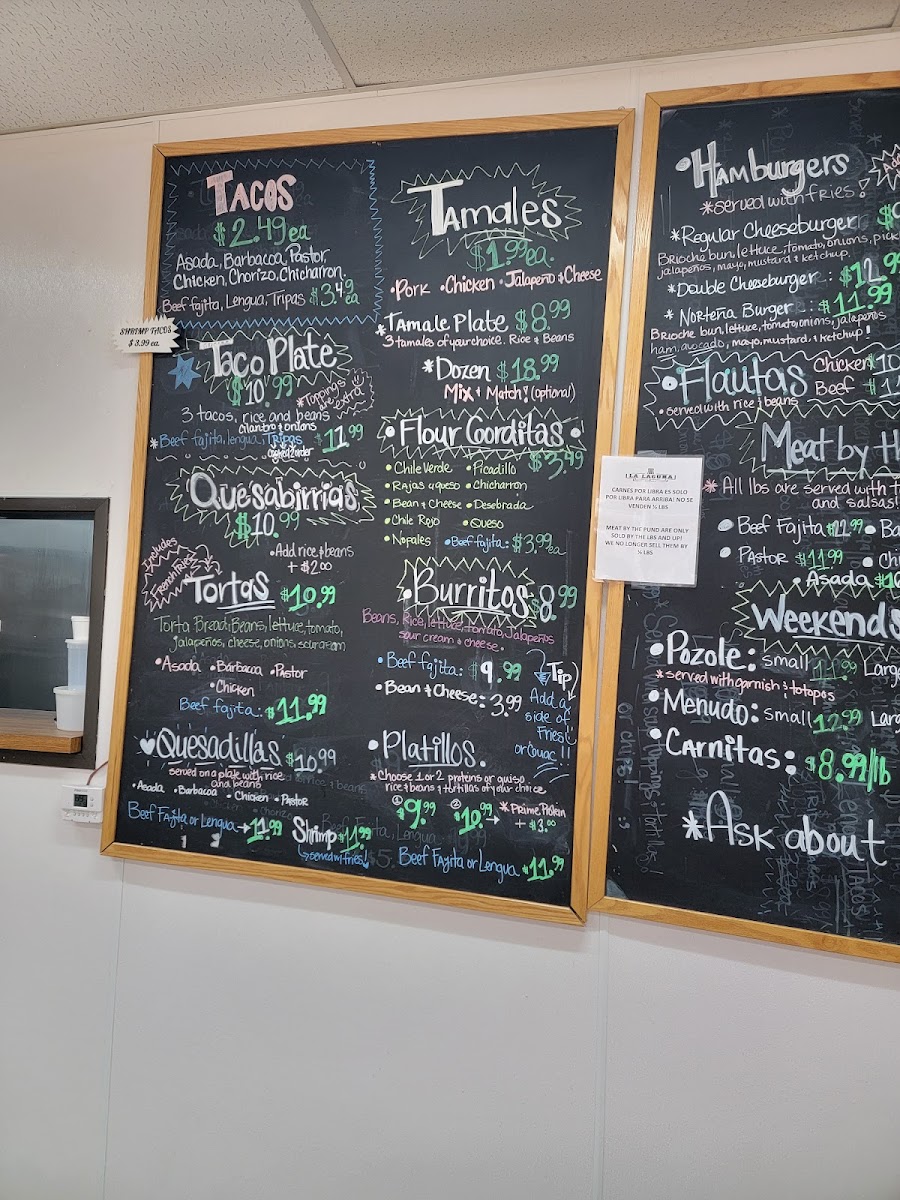 TACOS
$2.49 ea
Asada, Barbacoa, Pastor,
Chicken, Chorizo, Chicharron.
Beef fajita, Lengua, Tripas $3.49 ea
SHRIMP TACOS
$ 3.99 ea.
Taco Plate
$10.99
*Toppings are extra
3 tacos, rice and beans
cilantro & onions
*Beef fajita, lengua, Tripas $11.99
cooked 2 order
Quesabirrias
$10.99
•Add rice & beans
+ $2.00
Includes
French Fries
Tortas $10.99
Torta Bread, Beans, lettuce, tomato,
jalapeños, cheese, onions, sour cream
•Asada •Barbacoa •Pastor
•Chicken
Beef fajita: $11.99
Quesadillas $10.99
served on a plate with rice
and beans
•Asada •Barbacoa •Chicken •Pastor
Beef Fajita or Lengua → 11.99 Shrimp $11.99
served w/ fries!
Tamales
$1.99 ea.
•Pork •Chicken •Jalapeño & Cheese
*Tamale Plate $8.99
3 tamales of your choice. Rice & Beans
*Dozen $18.99
Mix & Match! (optional)
•Flour Gorditas•
$3.49
•Chile Verde •Picadillo
•Rajas a queso •Chicharron
•Bean & Cheese •Desebrada
•Chile Rojo •Queso
•Nopales •Beef fajita: $3.99 ea
•Burritos $8.99
Beans, Rice, lettuce, tomato, Jalapeños
sour cream & cheese.
•Beef fajita: $9.99
•Bean & Cheese: 3.99
Tip)
Add a
side of
Fries!
or Guac!!
•Platillos.
*Choose 1 or 2 proteins or guiso
rice & beans & tortillas of your choice
① $9.99 ② $10.99
+ $3.00
Beef Fajita or Lengua $11.99
•Hamburgers
*served with fries!
*Regular Cheeseburger
Brioche bun, lettuce, tomato, onions,
jalapeños, mayo, mustard & ketchup.
*Double Cheeseburger : $12.99
* Norteña Burger ... $11.99
Brioche bun, lettuce, tomato, onions, jalapeños
ham, avocado, mayo, mustard & ketchup!
•Flautas Chicken
Beef
•served with rice & beans
Meat by
*All lbs are served with
and salsas!
LA LAGUNA
CARNES POR LIBRA ES SOLO
POR LIBRA PARA ARRIBA! NO SE
VENDEN ½ LBS
MEAT BY THE PUND ARE ONLY
SOLD BY THE LBS AND UP!
WE NO LONGER SELL THEM BY
½ LBS
•Beef Fajita
•Pastor $11.99
•Asada
Weekends
•Pozole: small
*served with garnish & totopos
•Menudo: small 12.99
•Carnitas: $8.99/lb
*Ask about